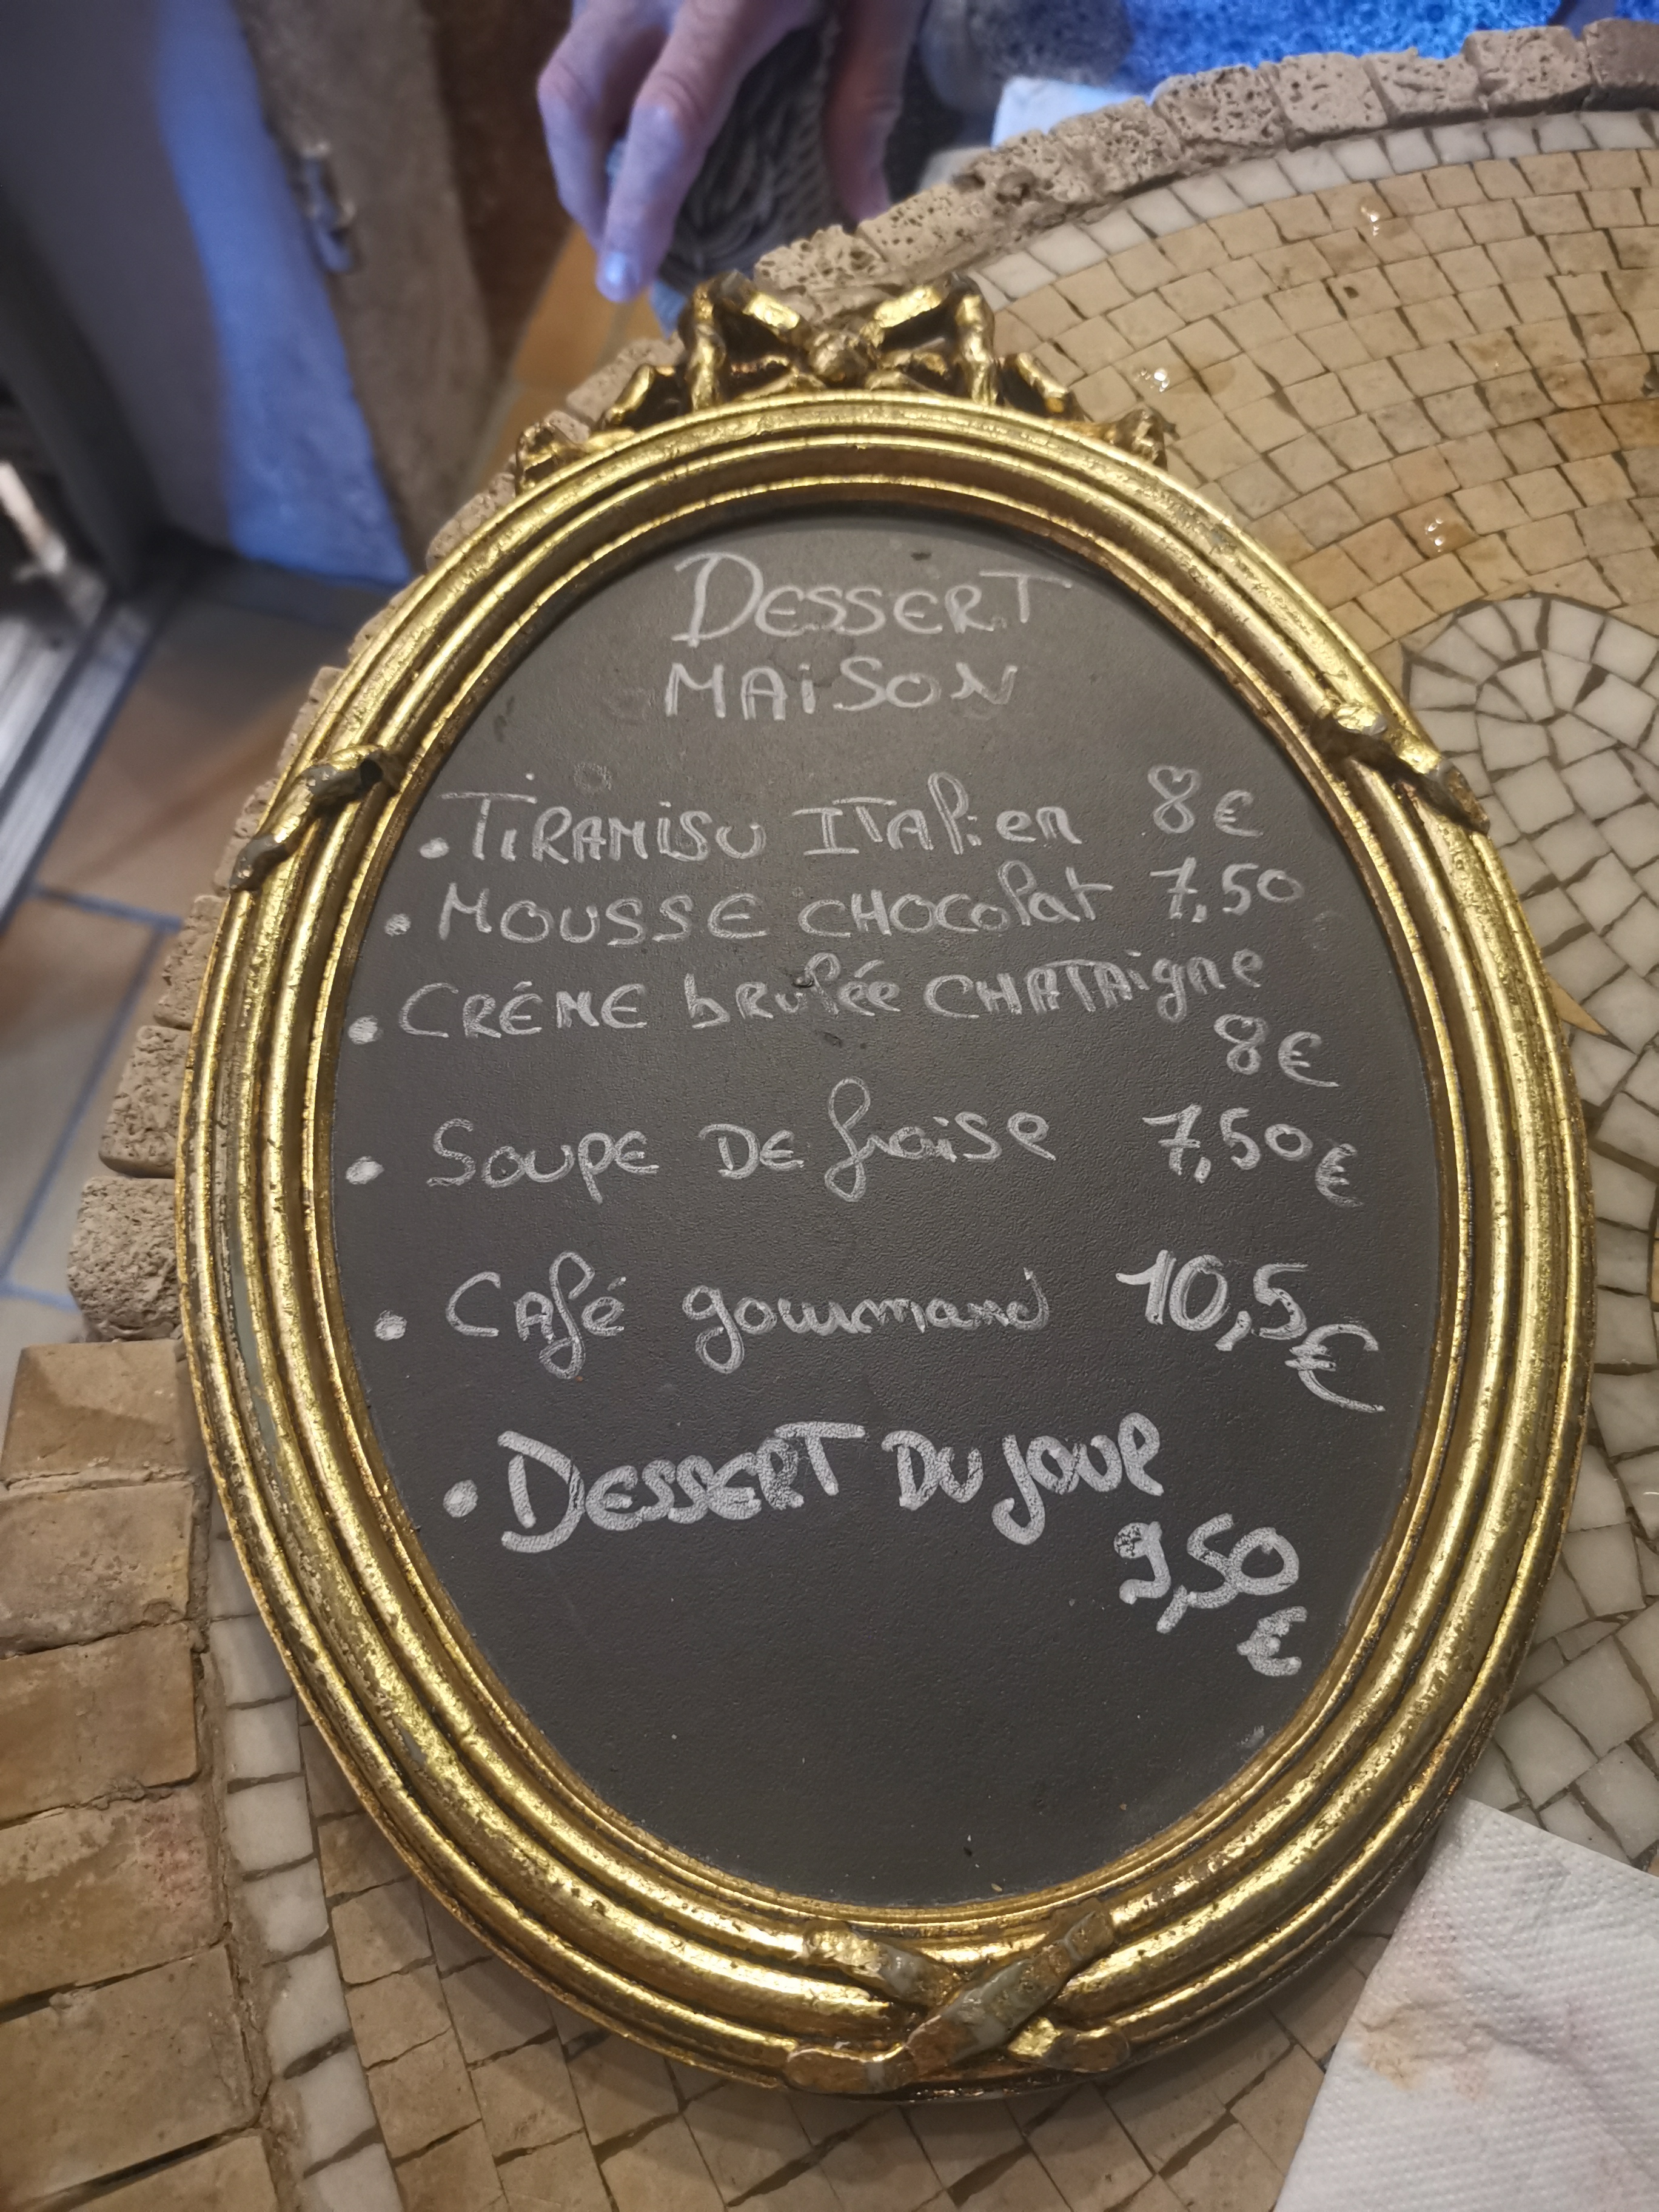 DESSERT
MAiSON
• TiRAMiSU ITAlien 8€
• MOUSSE CHOColat 7,50
• CRÉME brulée CHATAigne
8€
• SOUPE DE fraise 7,50€
• CAfé gourmand 10,5€
• DESSERT DU jour
9,50
€